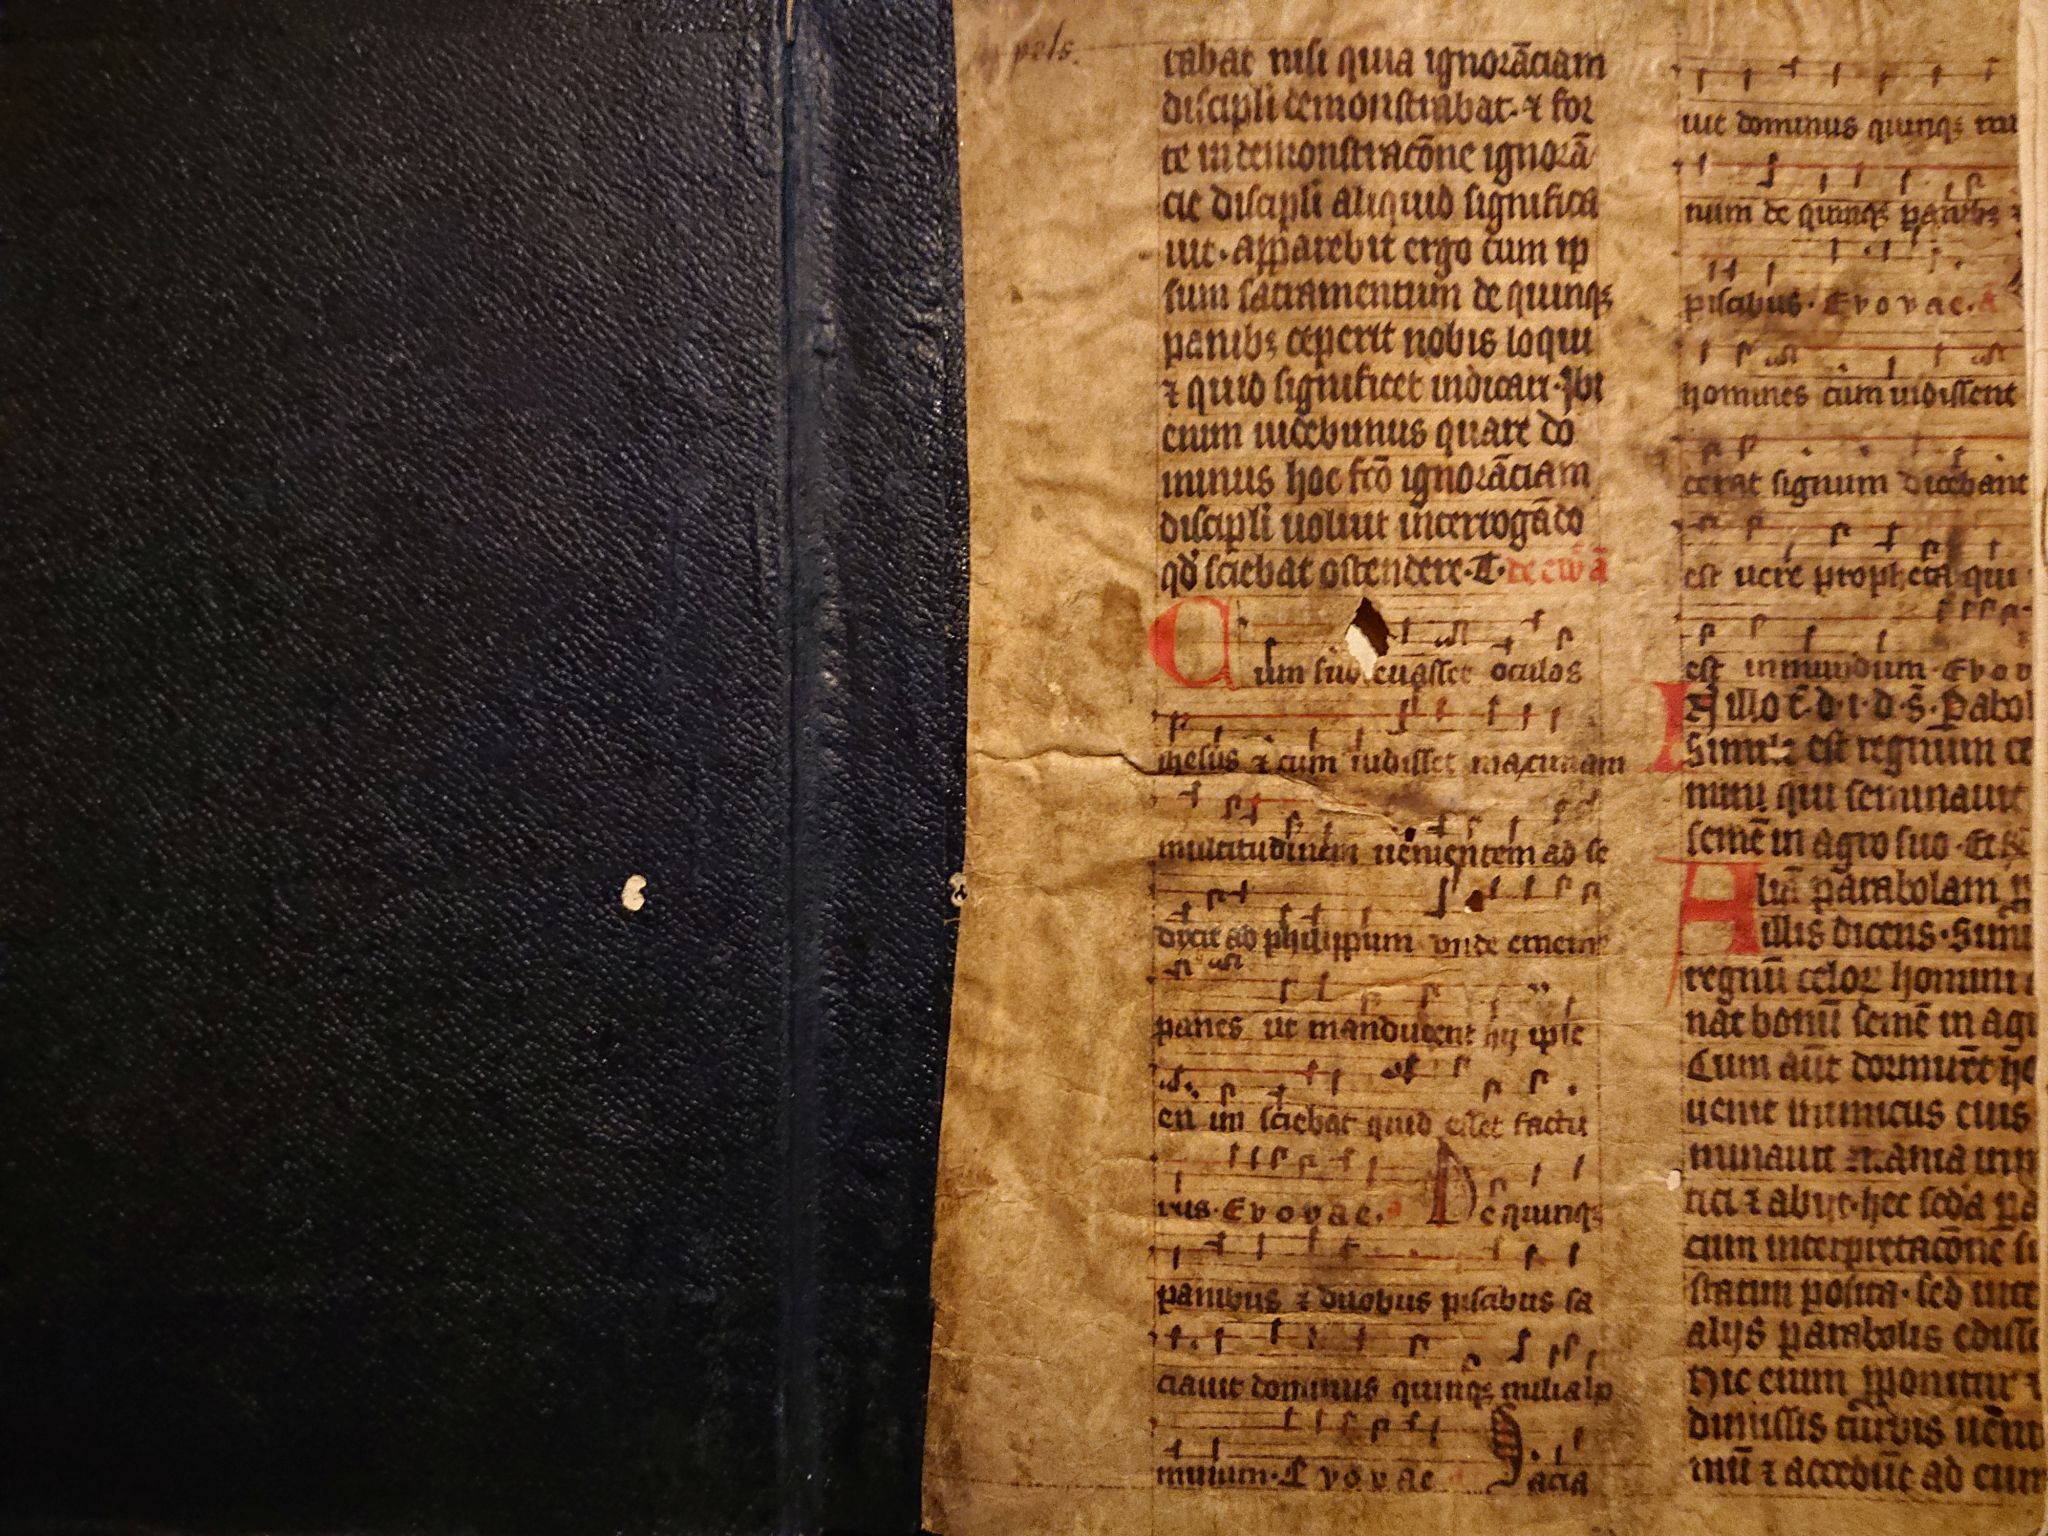 pels.
tabat nisi quia ignorãciam
discipli demonstrabat· ⁊ for
te in demonstracõne ignorã
cie discipli aliquid significa
uit· apparebit ergo cum ip
sum sacramentum de quinqꝫ
panibꝫ ceperit nobis loqui
⁊ quid significet indicari· Ibi
enim uidebimus quare do
minus hoc fcõ ignorãciam
discipli uoluit interrogãdo
qd̕ sciebat ostendere· T· de ewã
Cum subleuasset oculos
ihesus ⁊ cum uidisset maximam
multitudinem uenientem ad se
dixit ad philippum unde ememꝰ
panes ut manducent hij ipse
eñ im sciebat quid esset factu
rus· Evovae. a De quinqꝫ
panibus ⁊ duobus piscibus sa
ciauit dominus quinqꝫ milia
minum· Evovae Sacia
uit dominus quinqꝫ
num de quinqꝫ panibꝫ ⁊
piscibus· Evovae. A
homines cum uidissent
cerat signum dicebant
est uere propheta qui
est in mundum· Evov
In illo t̃· d· i· d· s̃· Pabol
Simile est regnum ce
mini qui seminauit
semẽ in agro suo· Et
Aliã parabolam p
illis dicens· Simi
regnũ celoꝝ homini
nat bonũ semẽ in ag
Cum aũt dormirẽt hõ
uenit inimicus eius
minauit zizania in
tici ⁊ abijt· hec scd̃a pa
cum interpretacõne
statim posita· sed inte
alijs parabolis
Hic enim proponitur
dimissis turbis ueni
mũ ⁊ accedũt ad eum